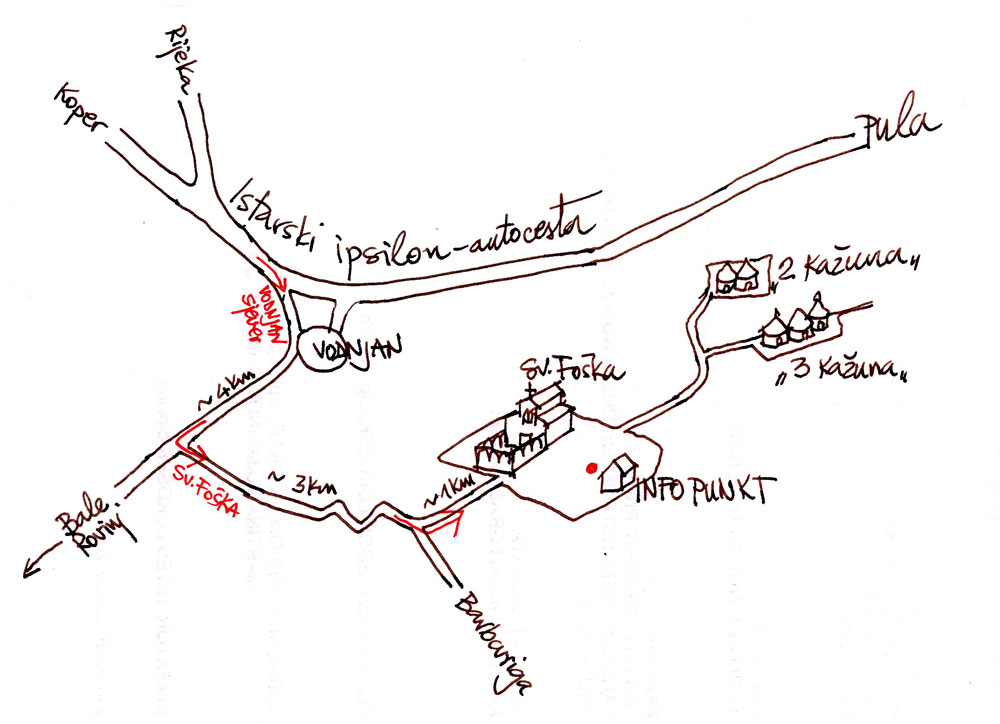 Rijeka
Koper
Pula
Istarski ipsilon-autocesta
VODNJAN
sjever
VODNJAN
„2 Kažuna„
„3 Kažuna„
~ 4km
Sv. Foška
~ 3km
~ 1km
Sv. FOŠKA
INFO PUNKT
Bale
Rovinj
Barbariga